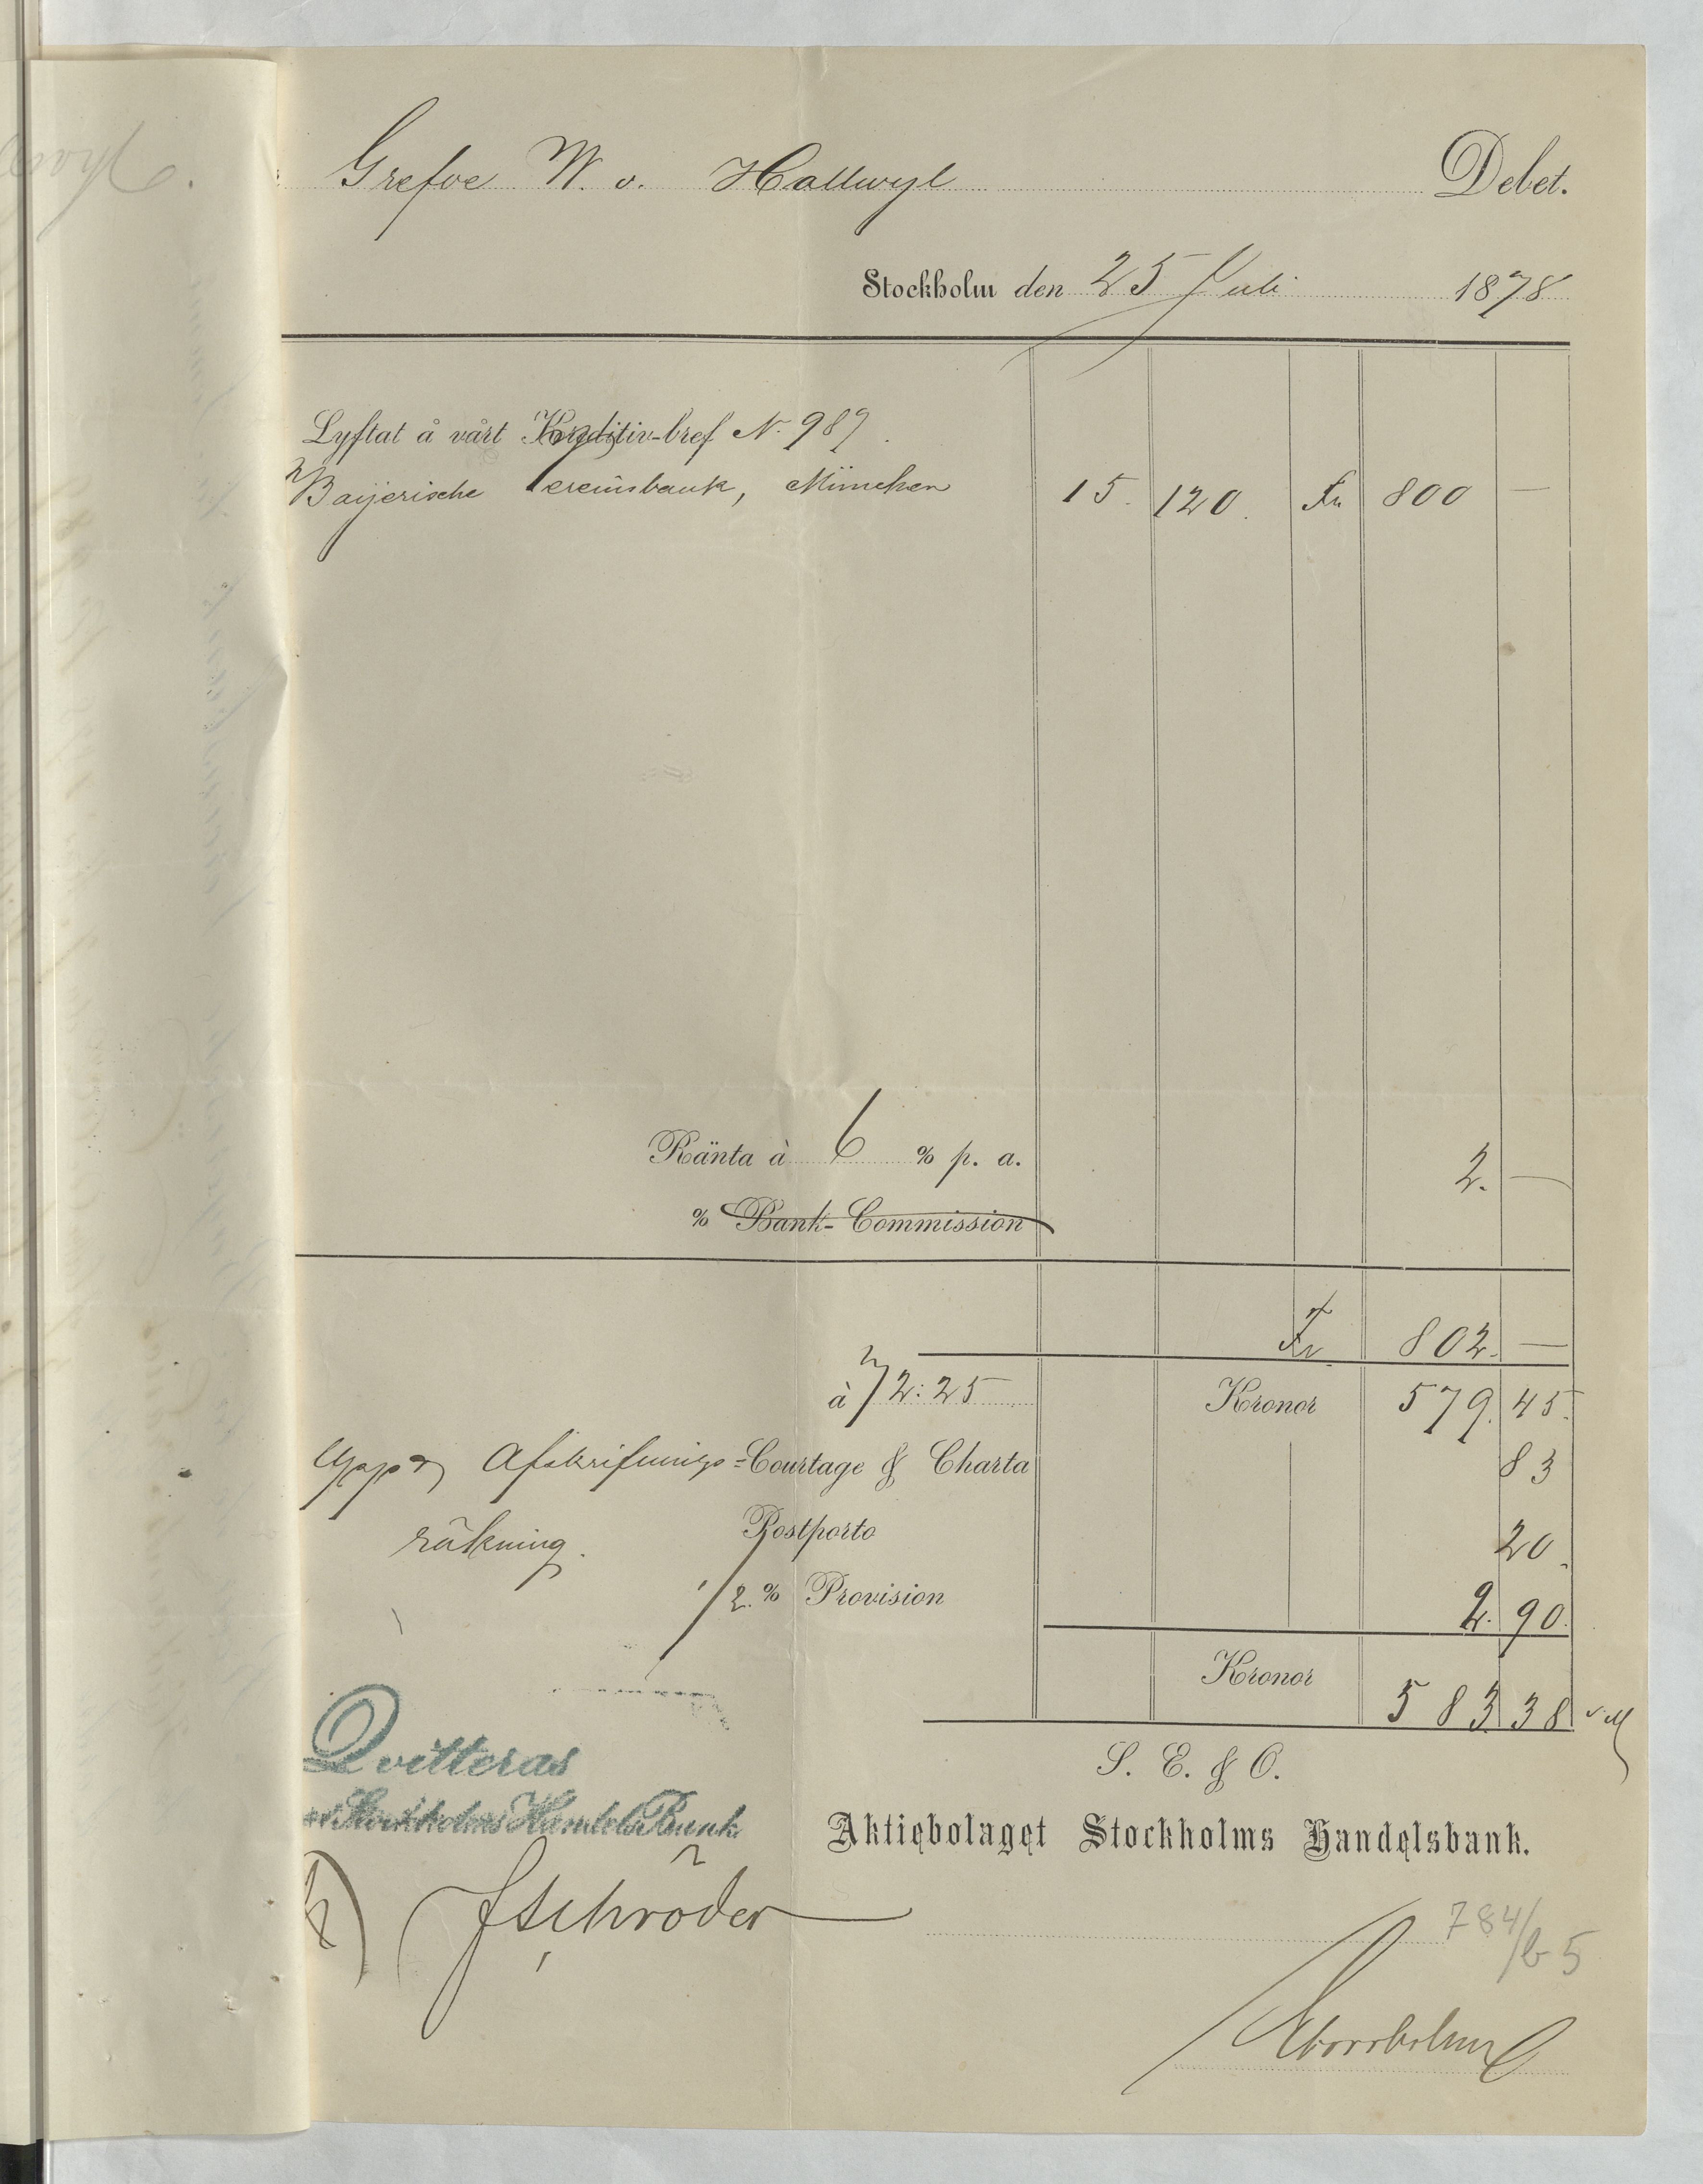 Grefve W. v. Hallwyl Debet.
Stockholm den 25 Juli 1878
Lyftat å vårt Kreditiv-bref N. 989.
Baijerische Vereinsbank, München 15. 120. Fr 800 —
Ränta à 6 % p. a. 2. —
% Bank-Commission
Fr 802. —
à 72:25 Kronor 579. 45.
Uppå Afskrifnings- Courtage & Charta 83
räkning. Postporto 20.
1/2 % Provision 2. 90.
Kronor 583 38
S. E. & O.
Qvitteras
Stockholms Handels Bank
Aktiebolaget Stockholms Handelsbank.
JSchröder
784/b 5